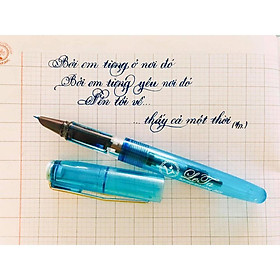 Bởi em từng ở nơi đó
Bởi em từng yêu nơi đó
Nên tôi về...
... thấy cả một thời